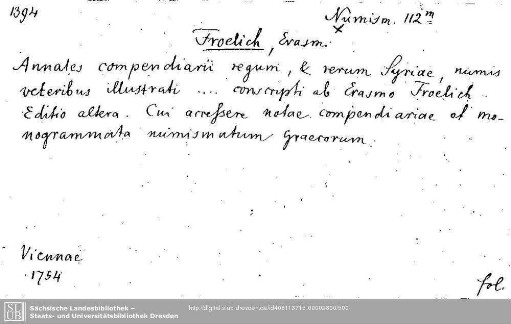 1394
Numism. 112m
x
Froelich, Erasm.
Annales compendiarii regum, & rerum Syriae, numis
veteribus illustrati .... conscripti ab Erasmo Froelich.
Editio altera. Cui accessere notae compendiariae et mo-
nogrammata numismatum graecorum.
Viennae
1754
fol.
SLUB
Sächsische Landesbibliothek –
Staats- und Universitätsbibliothek Dresden